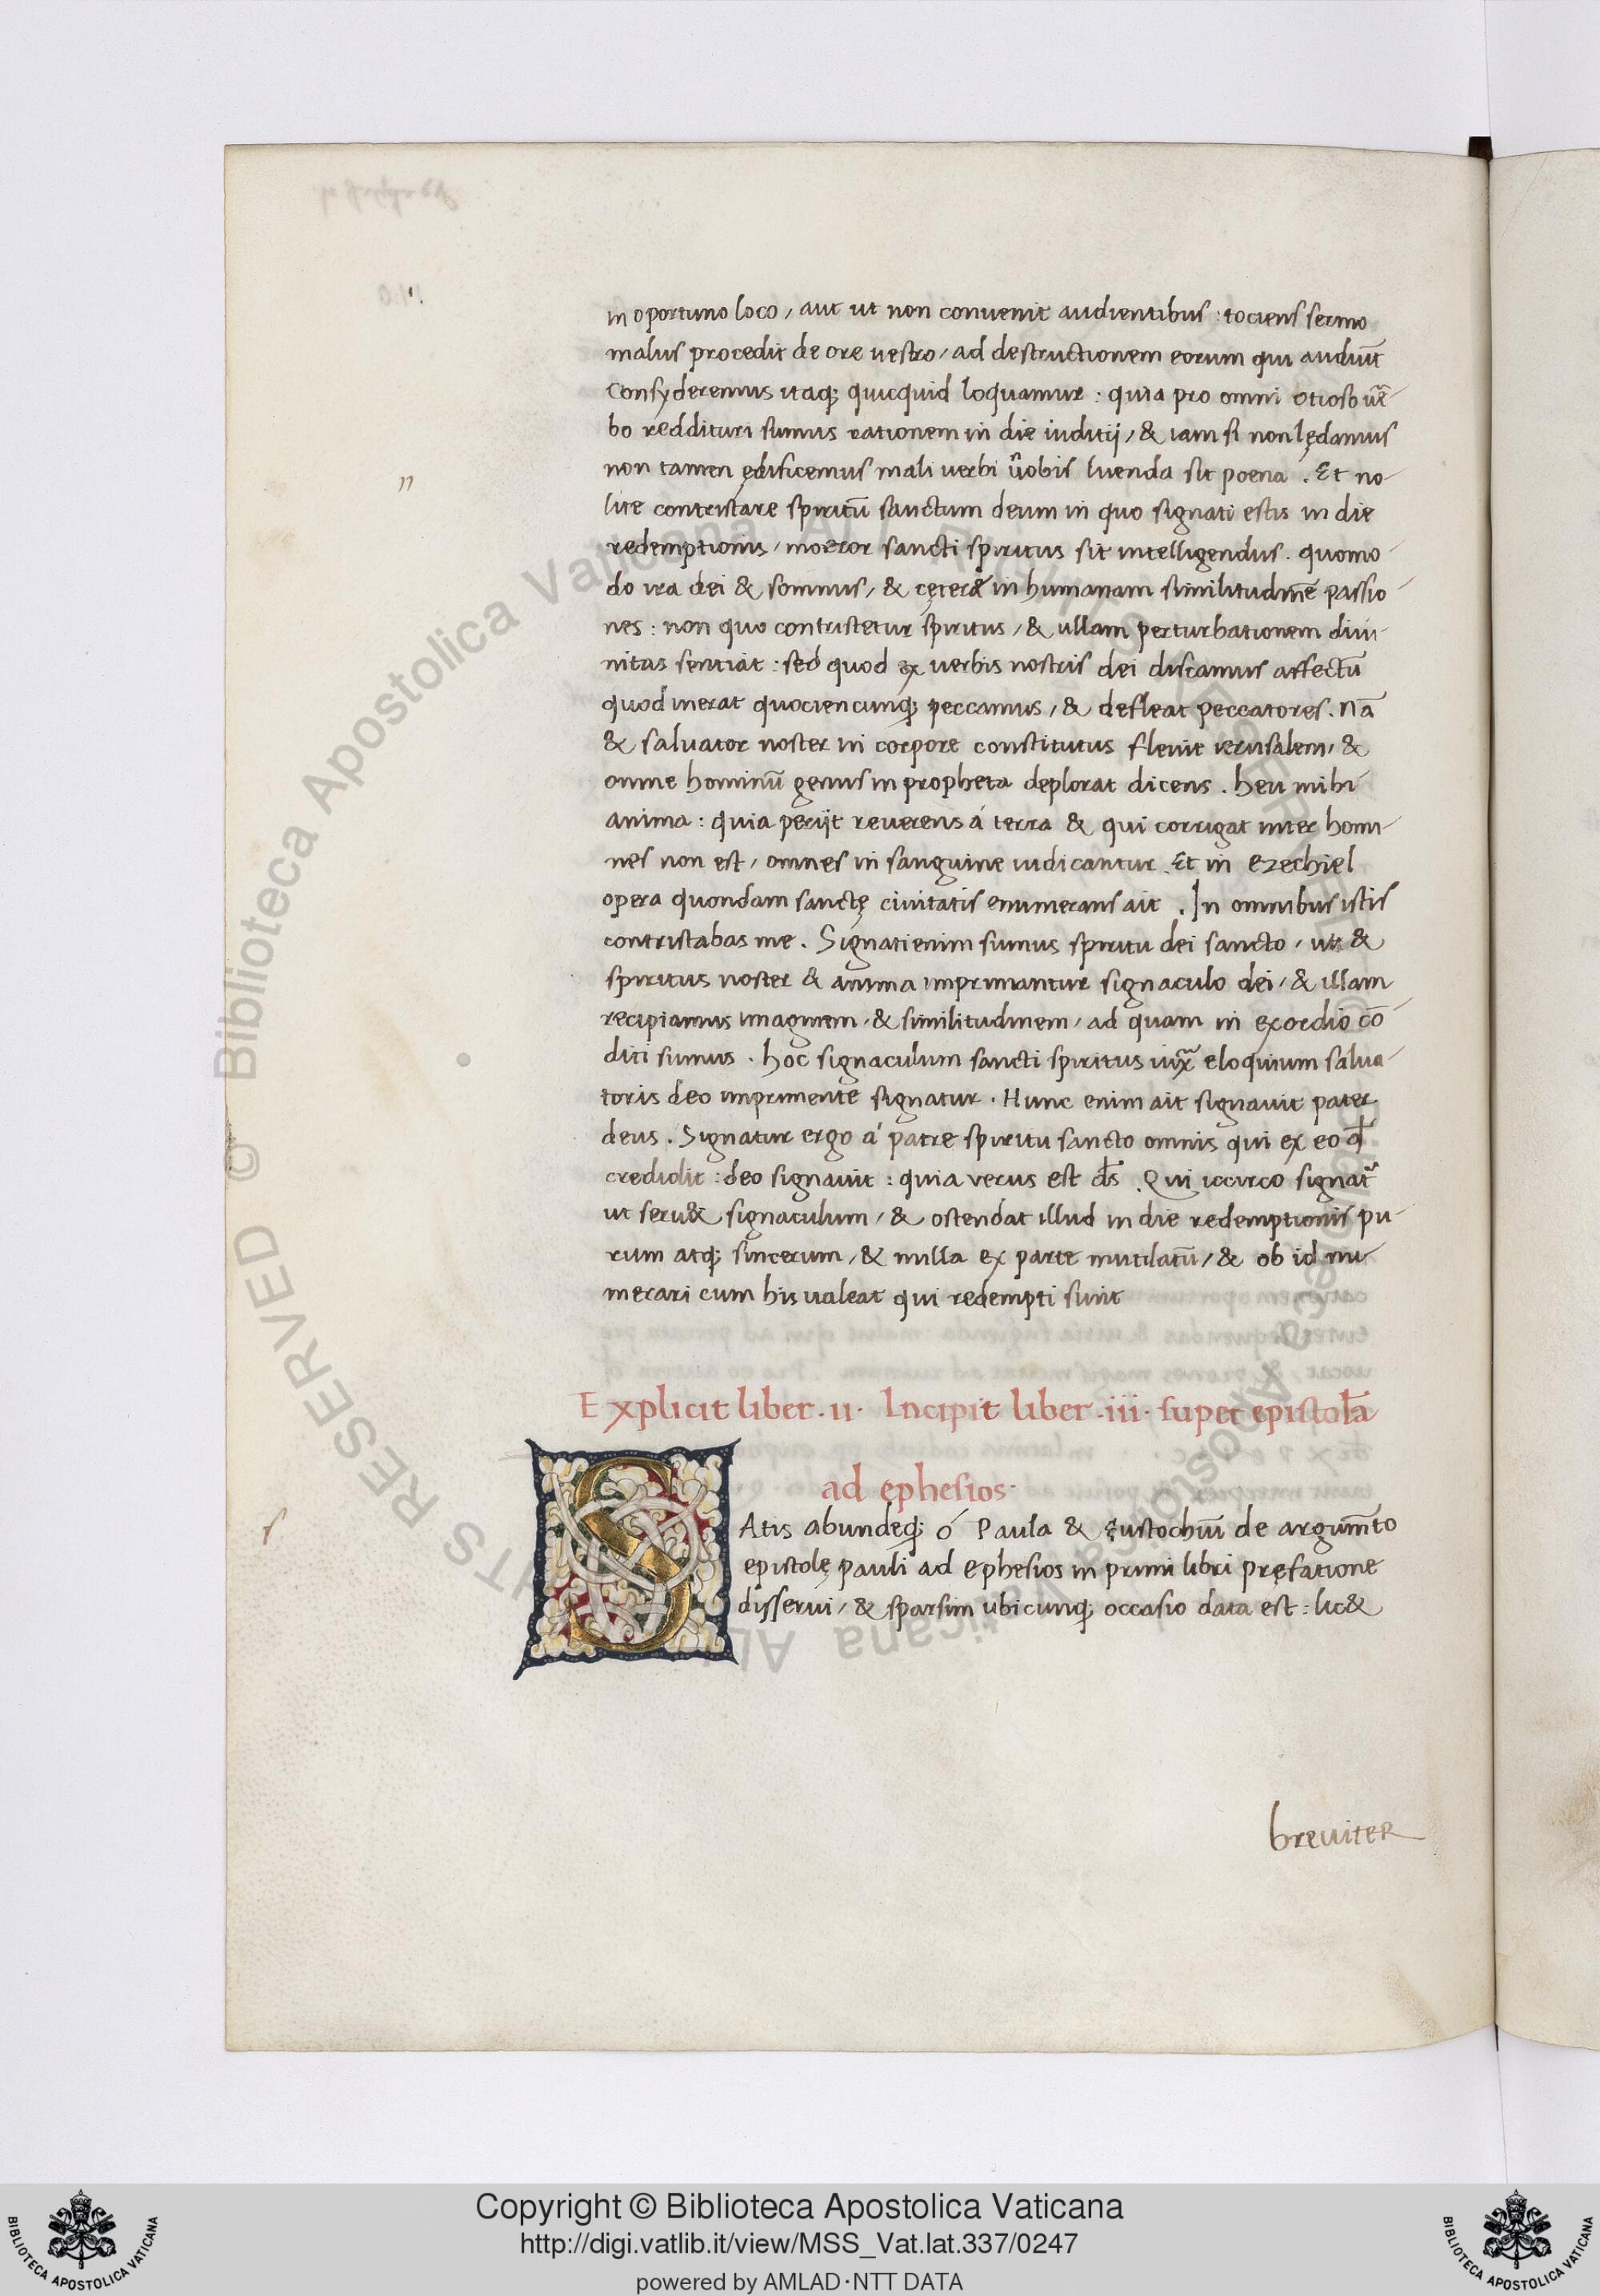 in oportuno loco / aut ut non conuenit audientibus : tociens sermo
malus procedit de ore uestro / ad destructionem eorum qui audiūt
Consyderemus itaq; quicquid loquamur : quia pro omni otioso uer̄-
bo reddituri sumus rationem in die iuditij / & iam si non lędamus
non tamen ędificemus mali uerbi uobis luenda sit poena . Et no-
lite contristare spiritū sanctum deum in quo signati estis in die
redemptionis / moeror sancti spiritus sit intelligendus . quomo-
do ira dei & somnus / & cęterę in humanam similitudinē passio-
nes : non quo contristetur spiritus / & ullam perturbationem diui-
nitas sentiat : sed quod ex uerbis nostris dei discamus affectū
quod inerat quociencunq; peccamus / & defleat peccatores . Nā
& saluator noster in corpore constitutus fleuit ierusalem / &
omne hominū genus in propheta deplorat dicens . heu mihi
anima : quia perijt reuerens á terra & qui corrigat inter homi-
nes non est / omnes in sanguine iudicantur . Et in ezechiel
opera quondam sanctę ciuitatis enumerans ait . In omnibus istis
contristabas me . Signati enim sumus spiritu dei sancto / ut &
spiritus noster & anima imprimantur signaculo dei / & illam
recipiamus imaginem / & similitudinem / ad quam in exordio cō-
diti sumus . hoc signaculum sancti spiritus iuxᵃ eloquium salua-
toris deo imprimente signatur . Hunc enim ait signauit pater
deus . Signatur ergo á patre spiritu sancto omnis qui ex eo qđ
credidit : deo signauit : quia verus est ds̄ . Qui iccirco signat̃
ut seru& signaculum / & ostendat illud in die redemptionis pu-
rum atq; sincerum / & nulla ex parte mutilatū / & ob id nu-
merari cum his ualeat qui redempti sunt
Explicit liber .ii. Incipit liber .iii. super epistolā
ad ephesios.
SAtis abundeq; ó Paula & Eustochiū de argum̄to
epistolę pauli ad ephesios in primi libri pręfatione
disserui / & sparsim ubicunq; occasio data est : lic&
breuiter
Biblioteca Apostolica Vaticana
Copyright © Biblioteca Apostolica Vaticana
http://digi.vatlib.it/view/MSS_Vat.lat.337/0247
powered by AMLAD·NTT DATA
BIBLIOTECA APOSTOLICA VATICANA
BIBLIOTECA APOSTOLICA VATICANA